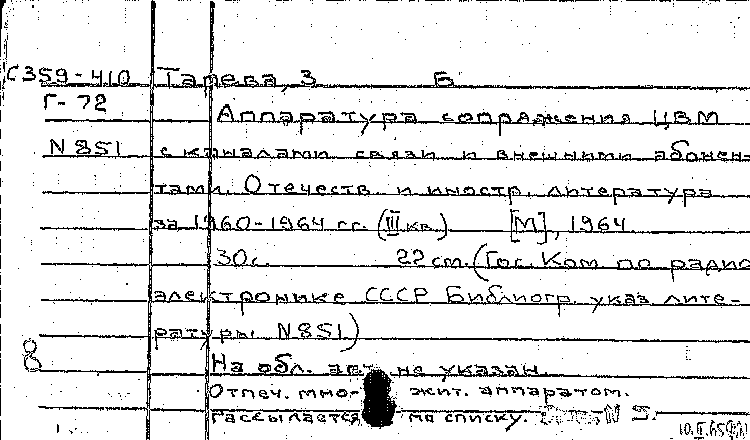 С359-410 Тарева, З Б
Г-72
Аппаратура сопряжения ЦВМ
N851 с каналами связи и внешними абонен-
тами. Отечеств. и иностр. литература
за 1960-1964 гг. (III кв.) [М], 1964
30с. 22 см. (Гос. Ком по радио
электронике СССР Библиогр. указ лите-
ратуры N851)
8 На обл. авт не указан.
Отпеч. мно- жит. аппаратом.
Рассылается по списку. N 5.